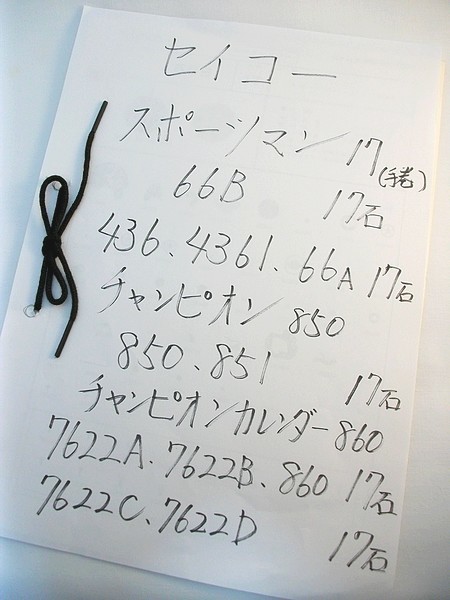 セイコー
スポーツマン 17 (手巻)
66B 17石
436、4361、66A 17石
チャンピオン 850
850、851 17石
チャンピオンカレンダー 860
7622A、7622B、860 17石
7622C、7622D 17石